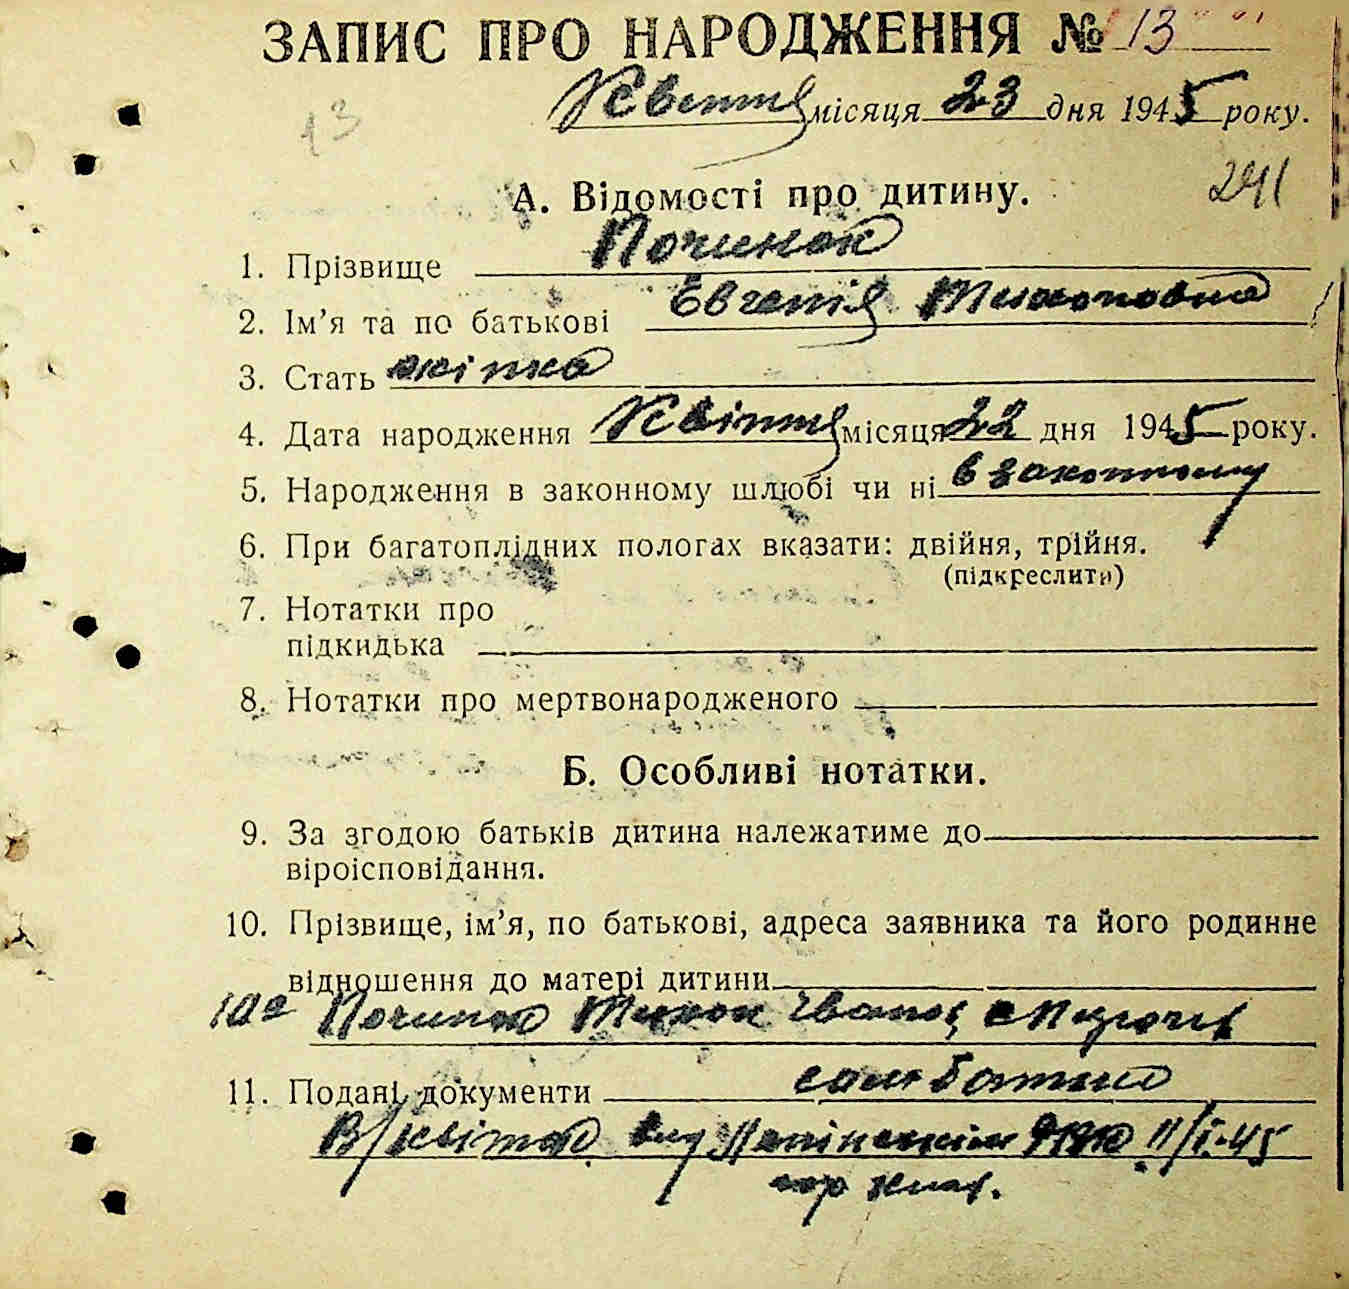 ЗАПИС ПРО НАРОДЖЕННЯ № 13
Квітня місяця 23 дня 1945 року.
13
241
А. Відомості про дитину.
1. Прізвище Починок
2. Ім’я та по батькові Евгенія Тихоновна
3. Стать жінка
4. Дата народження Квітня місяця 22 дня 1945 року.
5. Народження в законному шлюбі чи ні в законному
6. При багатоплідних пологах вказати: двійня, трійня.
(підкреслити)
7. Нотатки про
підкидька
8. Нотатки про мертвонародженого
Б. Особливі нотатки.
9. За згодою батьків дитина належатиме до
віроісповідання.
10. Прізвище, ім’я, по батькові, адреса заявника та його родинне
відношення до матері дитини
Починок Тихон
сам батько
11. Подані документи
В/квіток від 11/I-45
гор